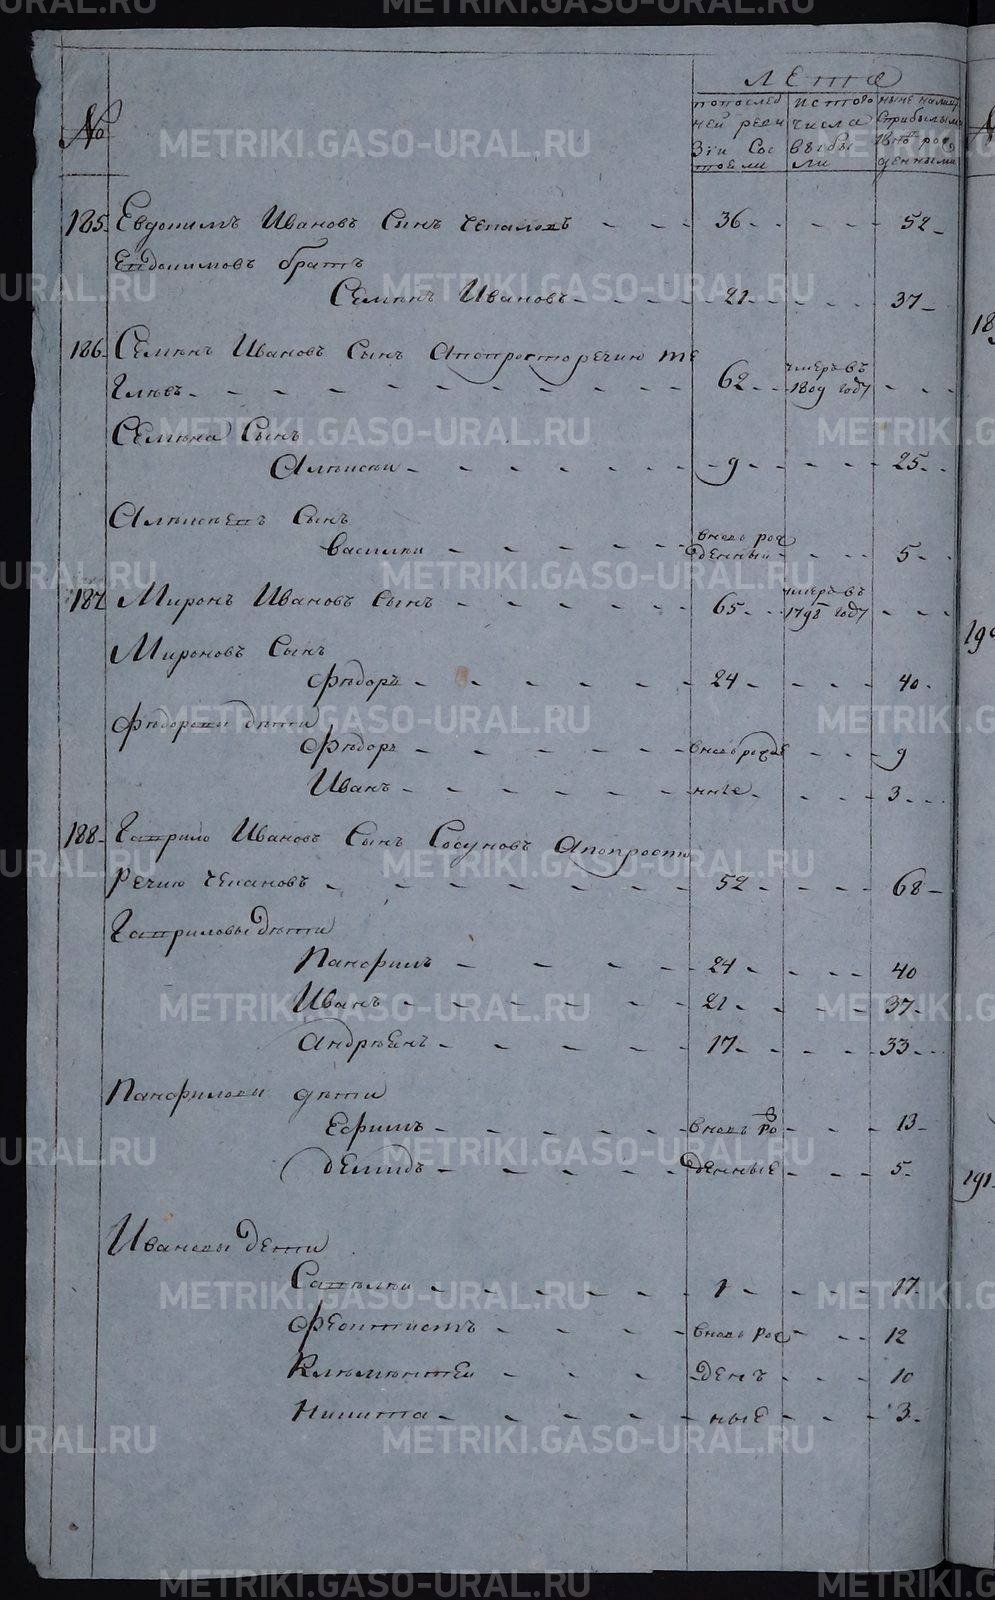 №
лета
по послед
ней реви
зiи со
тоели
ис того
числа
выбы
ли
ныне на лицо
с прибылыми
и внѣ рож
денными
185 Евдокимъ Ивановъ сынъ чепаловъ 36 52
Евдокимовъ братъ
Семенъ Ивановъ 21 37
186 Семенъ Ивановъ сынъ а по просторечию те
глевъ 62 умеръ въ 1809 году
Семена сынъ
Алексеи 9 25
Алексеевъ сынъ
василеи вновь рож денныи 5
187 Миронъ Ивановъ сынъ 65 умеръ въ 1798 году
Мироновъ сынъ
Федоръ 24 40
Федоровы дети
Федоръ вновь рожде 9
Иванъ нные 3
188 Гаврило Ивановъ сынъ Сосуновъ а по просто
речию чепановъ 52 68
Гавриловы дети
Панфилъ 24 40
Иванъ 21 37
Андреянъ 17 33
Панфиловы дети
Ефимъ вновь рож 13
демидъ денные 5
Ивановы дети
Савелеи 1 17
Феоктистъ вновь рож 12
Клементеи ден 10
Никита ные 3
190
191
METRIKI.GASO-URAL.RU